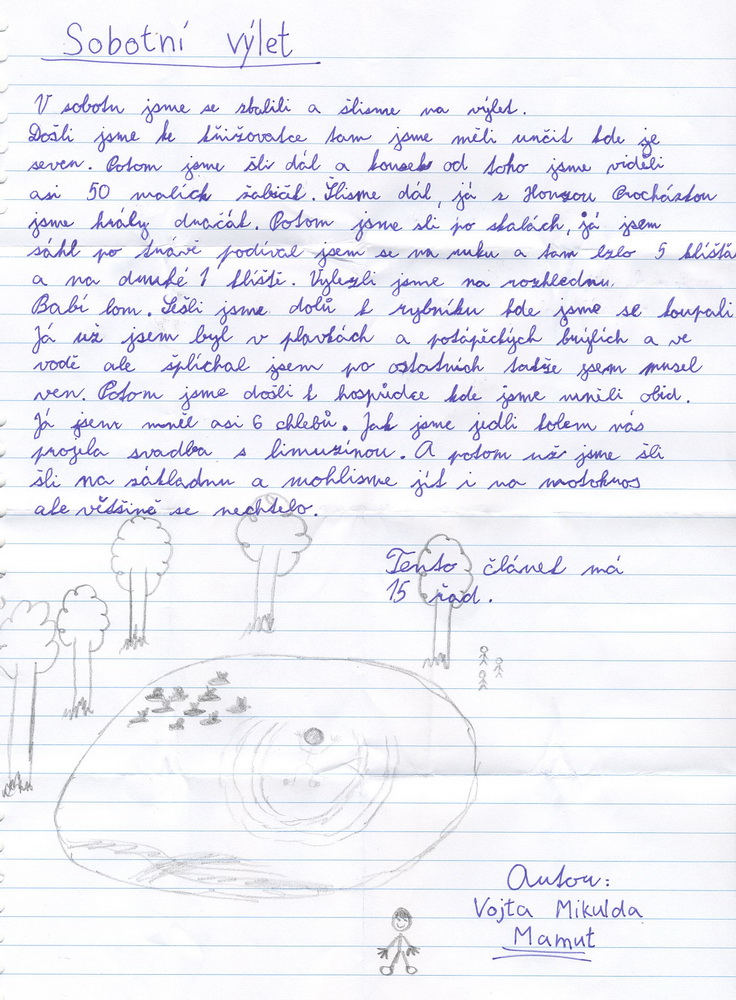 Sobotní výlet
V sobotu jsme se sbalili a šlisme na výlet.
Došli jsme ke křižovatce tam jsme měli určit kde je
sever. Potom jsme šli dál a kousek od toho jsme viděli
asi 50 malích žabiček. Šlisme dál, já s Honzou Procházkou
jsme hrály drnačák. Potom jsme šli po skalách, já jsem
sáhl po trávě podíval jsem se na ruku a tam lzlo 5 klíšťá
a na druhé 1 klíště. Vylezli jsme na rozhlednu
Babí lom. Sešli jsme dolů k rybníku kde jsme se koupali
Já už jsem byl v plavkách a potápěckých brýlích a ve
vodě ale šplíchal jsem po ostatních takže jsem musel
ven. Potom jsme došli k hospůdce kde jsme mněli obid.
Já jsem mněl asi 6 chlebů. Jak jsme jedli kolem nás
projela svadba s limuzínou. A potom už jsme šli
šli na základnu a mohlisme jít i na motokros
ale většině se nechtelo.
Tento článek má
15 řad.
Autor:
Vojta Mikulda
Mamut